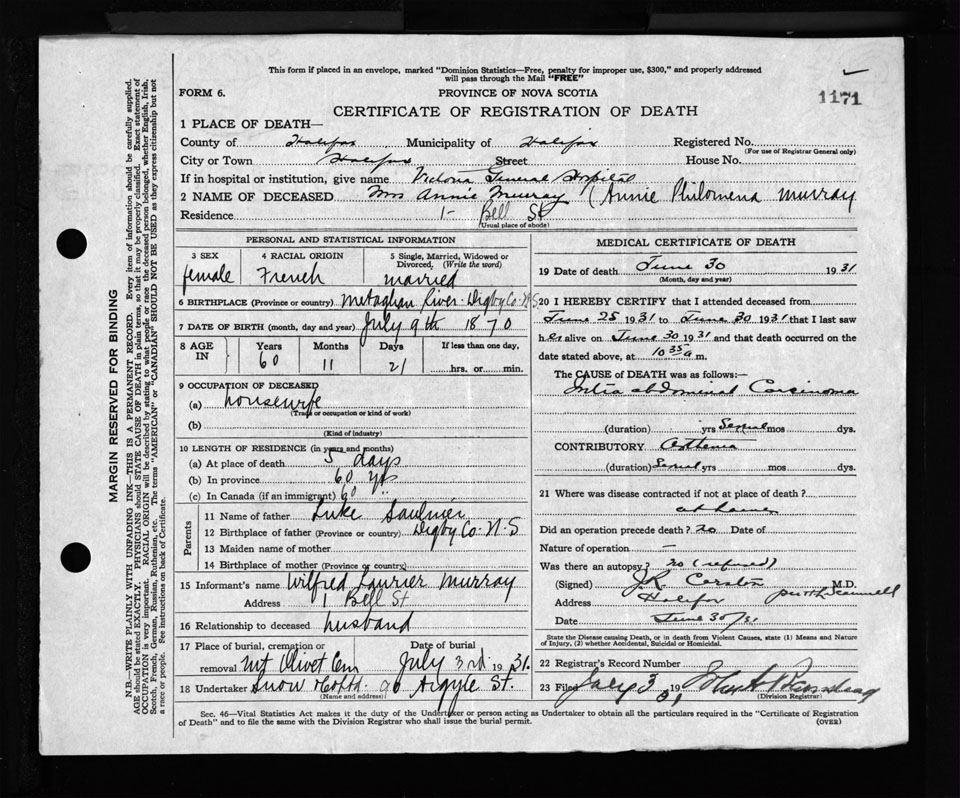 This form if placed in an envelope, marked "Dominion Statistics—Free, penalty for improper use, $300," and properly addressed
will pass through the Mail "FREE"
FORM 6.
PROVINCE OF NOVA SCOTIA
1171
CERTIFICATE OF REGISTRATION OF DEATH
1 PLACE OF DEATH—
County of Halifax Municipality of Halifax Registered No.
(For use of Registrar General only)
City or Town Halifax Street House No.
If in hospital or institution, give name Victoria General Hospital
2 NAME OF DECEASED Mrs Annie Murray (Annie Philomena Murray
Residence 1- Bell St
(Usual place of abode)
PERSONAL AND STATISTICAL INFORMATION
3 SEX 4 RACIAL ORIGIN 5 Single, Married, Widowed or
Divorced. (Write the word)
female French married
6 BIRTHPLACE (Province or country) Metaghan River. Digby Co. N.S
7 DATE OF BIRTH (month, day and year) July 9th 1870
8 AGE IN Years Months Days If less than one day,
60 11 21 hrs. or min.
9 OCCUPATION OF DECEASED
(a) housewife
(Trade or occupation or kind of work)
(b)
(Kind of industry)
10 LENGTH OF RESIDENCE (in years and months)
(a) At place of death 5 days
(b) In province 60 yrs
(c) In Canada (if an immigrant) 60 "
Parents
11 Name of father Luke Saulnier
12 Birthplace of father (Province or country) Digby Co. N.S
13 Maiden name of mother
14 Birthplace of mother (Province or country)
15 Informant's name Wilfred Laurier Murray
Address 1 Bell St
16 Relationship to deceased husband
17 Place of burial, cremation or Date of burial
removal Mt Olivet Cem July 3rd 1931.
18 Undertaker Snow & Co Ltd. 90 Argyle St.
(Name and address)
MEDICAL CERTIFICATE OF DEATH
19 Date of death June 30 1931
(Month, day and year)
20 I HEREBY CERTIFY that I attended deceased from
June 25 1931 to June 30 1931 that I last saw
her alive on June 30 1931 and that death occurred on the
date stated above, at 10 35 a m.
The CAUSE OF DEATH was as follows:—
Intra abdominal Carcinoma
(duration) yrs Several mos dys.
CONTRIBUTORY Asthenia
(duration) Several yrs mos dys.
21 Where was disease contracted if not at place of death?
at home
Did an operation precede death? no Date of
Nature of operation —
Was there an autopsy? no (refused)
(Signed) J.R. Corston M.D.
Address Halifax
Date June 30/31
State the Disease causing Death, or in death from Violent Causes, state (1) Means and Nature
of Injury, (2) whether Accidental, Suicidal or Homicidal.
22 Registrar's Record Number
23 Filed July 3 1931
(Division Registrar)
Sec. 46—Vital Statistics Act makes it the duty of the Undertaker or person acting as Undertaker to obtain all the particulars required in the "Certificate of Registration
of Death" and to file the same with the Division Registrar who shall issue the burial permit.
(OVER)
MARGIN RESERVED FOR BINDING
N.B.—WRITE PLAINLY WITH UNFADING INK—THIS IS A PERMANENT RECORD. Every item of information should be carefully supplied.
AGE should be stated EXACTLY. PHYSICIANS should STATE CAUSE OF DEATH in plain terms, so that it may be properly classified. Exact statement of
OCCUPATION is very important. RACIAL ORIGIN will be described by stating to what people or race the deceased person belonged, whether English, Irish,
Scotch, French, German, Russian, Ruthenian, etc. The terms "AMERICAN" or "CANADIAN" SHOULD NOT BE USED as they express citizenship but not
a race or people. See instructions on back of Certificate.